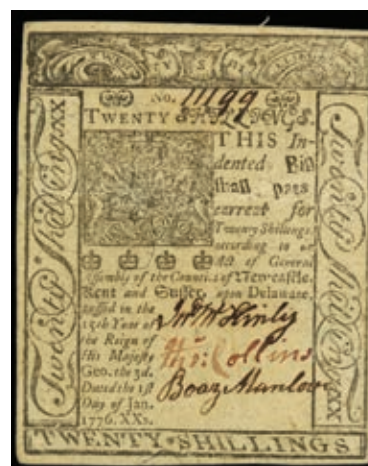 No. 11199
TWENTY SHILLINGS.
THIS In-
dented Bill
shall pass
current for
Twenty Shillings,
according to
Act of General
Assembly of the Counties of Newcastle,
Kent and Sussex, upon Delaware,
passed in the
15th Year of
the Reign of
His Majesty
Geo. the 3d.
Dated the 1st
Day of Jan.
1776. XXs.
Jno McKinly
Thos: Collins
Boaz Manlove
Twenty Shillings XX
Twenty Shillings XX
TWENTY SHILLINGS